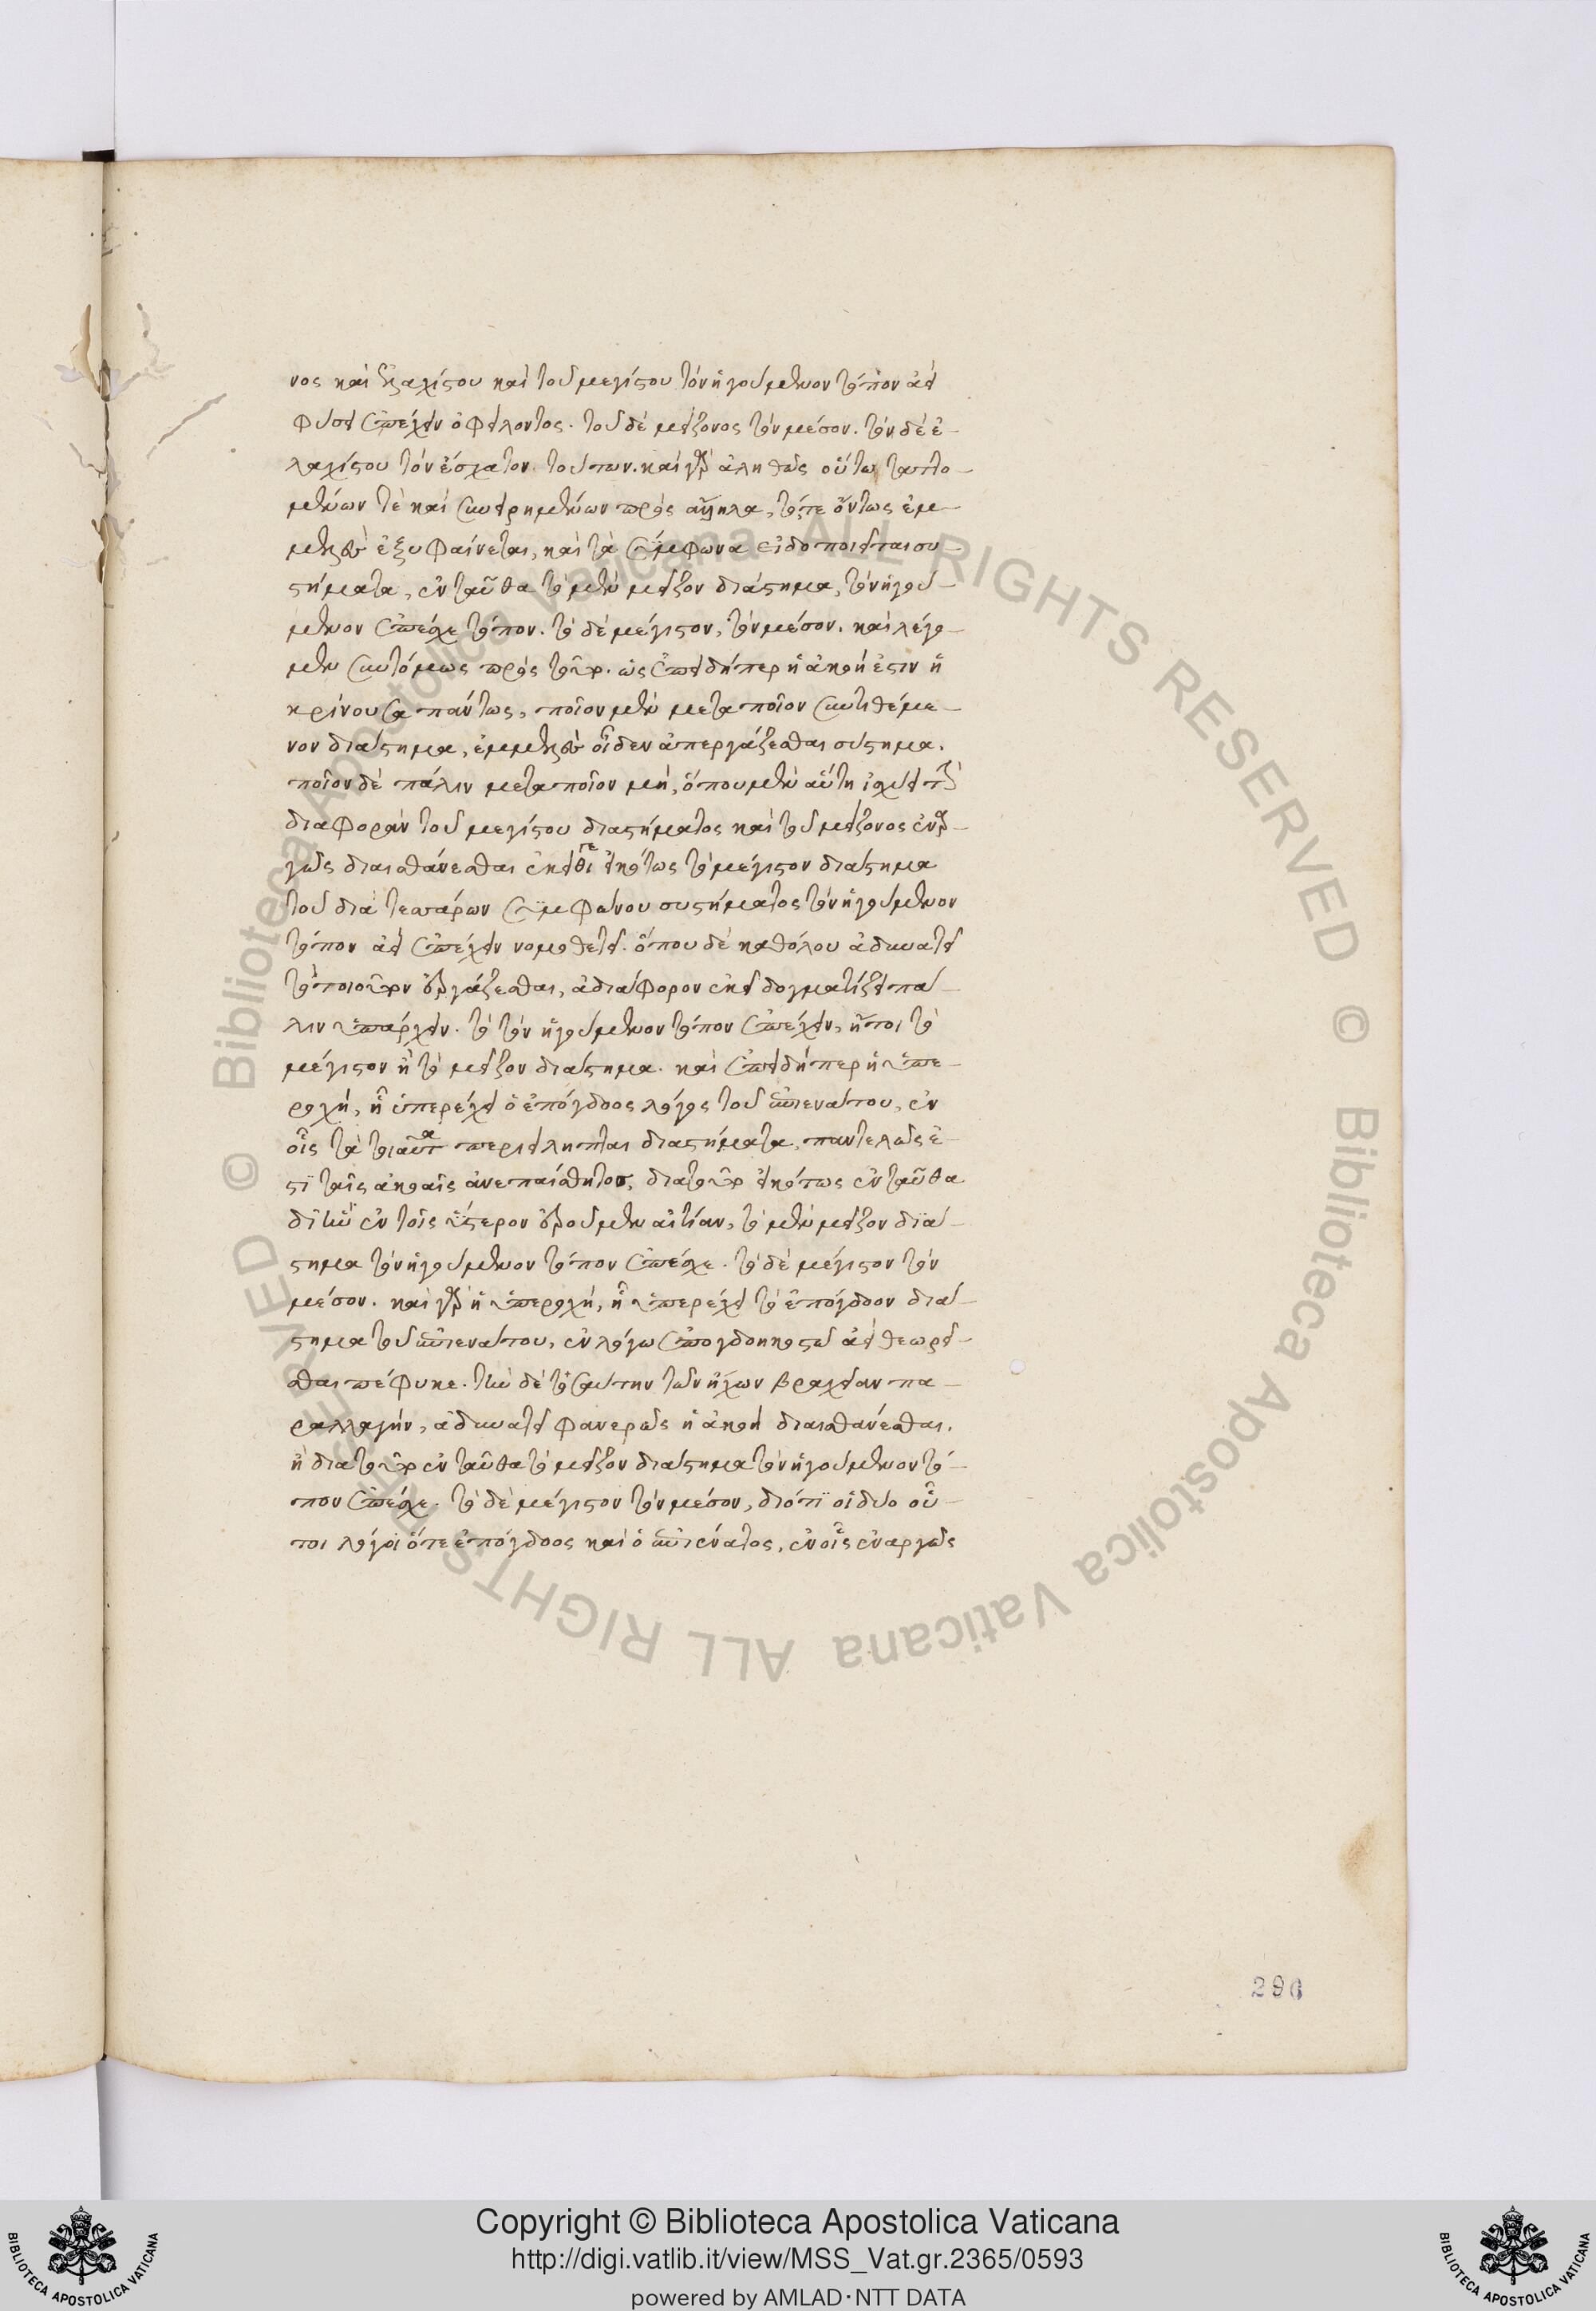 νος καὶ ἐλαχίστου καὶ τοῦ μεγίστου τὸν ἡγούμενον τόπον ἀεὶ
φύσει ἐπέχειν ὀφείλοντος. τοῦ δὲ μείζονος τὸν μέσον. τὸν δὲ ἐ-
λαχίστου τὸν ἔσχατον τούτων. καὶ γὰρ ἀληθῶς οὕτω ταττο-
μένων τὲ καὶ συνειρημένων πρὸς ἄλληλα, τότε ὄντως ἐμ-
μελῶς ἐξυφαίνεται, καὶ τὰ σύμφωνα εἰδοποιεῖται συ-
στήματα, ἐνταῦθα τὸ μὲν μεῖζον διάστημα, τὸν ἡγού-
μενον ἐπέχει τόπον. τὸ δὲ μέγιστον, τὸν μέσον. καὶ λέγο-
μεν συντόμως πρὸς τοῦτο. ὡς ἐπειδήπερ ἡ ἀκοή ἐστιν ἡ
κρίνουσα πάντως, ποῖον μὲν μετὰ ποῖον συντιθέμε-
νον διάστημα, ἐμμελῶς οἶδεν ἀπεργάζεσθαι σύστημα.
ποῖον δὲ πάλιν μετὰ ποῖον μή, ὅπου μὲν αὕτη ἰσχύει τὴν
διαφορὰν τοῦ μεγίστου διαστήματος καὶ τοῦ μείζονος ἐναρ-
γῶς διαισθάνεσθαι ἐκεῖθί γε εἰκότως τὸ μέγιστον διάστημα
τοῦ διὰ τεσσάρων συμφώνου συστήματος τὸν ἡγούμενον
τόπον ἀεὶ ἐπέχειν νομοθετεῖ. ὅπου δὲ καθόλου ἀδυνατεῖ
τὸ ποιοῦτον ἐργάζεσθαι, ἀδιάφορον ἐκεῖ δογματίζει πά-
λιν ὑπάρχειν. τὸ τὸν ἡγούμενον τόπον ἐπέχειν, ἤτοι τὸ
μέγιστον ἢ τὸ μεῖζον διάστημα. καὶ ἐπειδήπερ ἡ ὑπε-
ροχή, ᾗ ὑπερέχει ὁ ἐπόγδοος λόγος τοῦ ἐπιενάτου, ἐν
οἷς τὰ τοιαῦτα περιείληπται διαστήματα, παντελῶς ἐ-
στὶ ταῖς ἀκοαῖς ἀνεπαίσθητος, διὰ τοῦτο εἰκότως ἐνταῦθα
δι' ἣν ἐν τοῖς ὕστερον ἐροῦμεν αἰτίαν, τὸ μὲν μεῖζον διά-
στημα τὸν ἡγούμενον τόπον ἐπέχει. τὸ δὲ μέγιστον τὸν
μέσον. καὶ γὰρ ἡ ὑπεροχή, ᾗ ὑπερέχει τὸ ἐπόγδοον διά-
στημα τοῦ ἐπιενάτου, ἐν λόγω ἐπογδοηκοστῶ ἀεὶ θεωρεῖ-
σθαι πέφυκε. τὴν δὲ τοσαύτην τῶν ἤχων βραχεῖαν πα-
ραλλαγήν, ἀδυνατεῖ φανερῶς ἡ ἀκοὴ διαισθάνεσθαι.
ἢ διὰ τοῦτο ἐνταῦθα τὸ μεῖζον διάστημα τὸν ἡγούμενον τό-
πον ἐπέχει. τὸ δὲ μέγιστον τὸν μέσον, διότι οἱ δύο οὗ-
τοι λόγοι ὅτε ἐπόγδοος καὶ ὁ ἐπιένατος, ἐν οἷς ἐναργῶς
290
Copyright © Biblioteca Apostolica Vaticana
http://digi.vatlib.it/view/MSS_Vat.gr.2365/0593
powered by AMLAD·NTT DATA